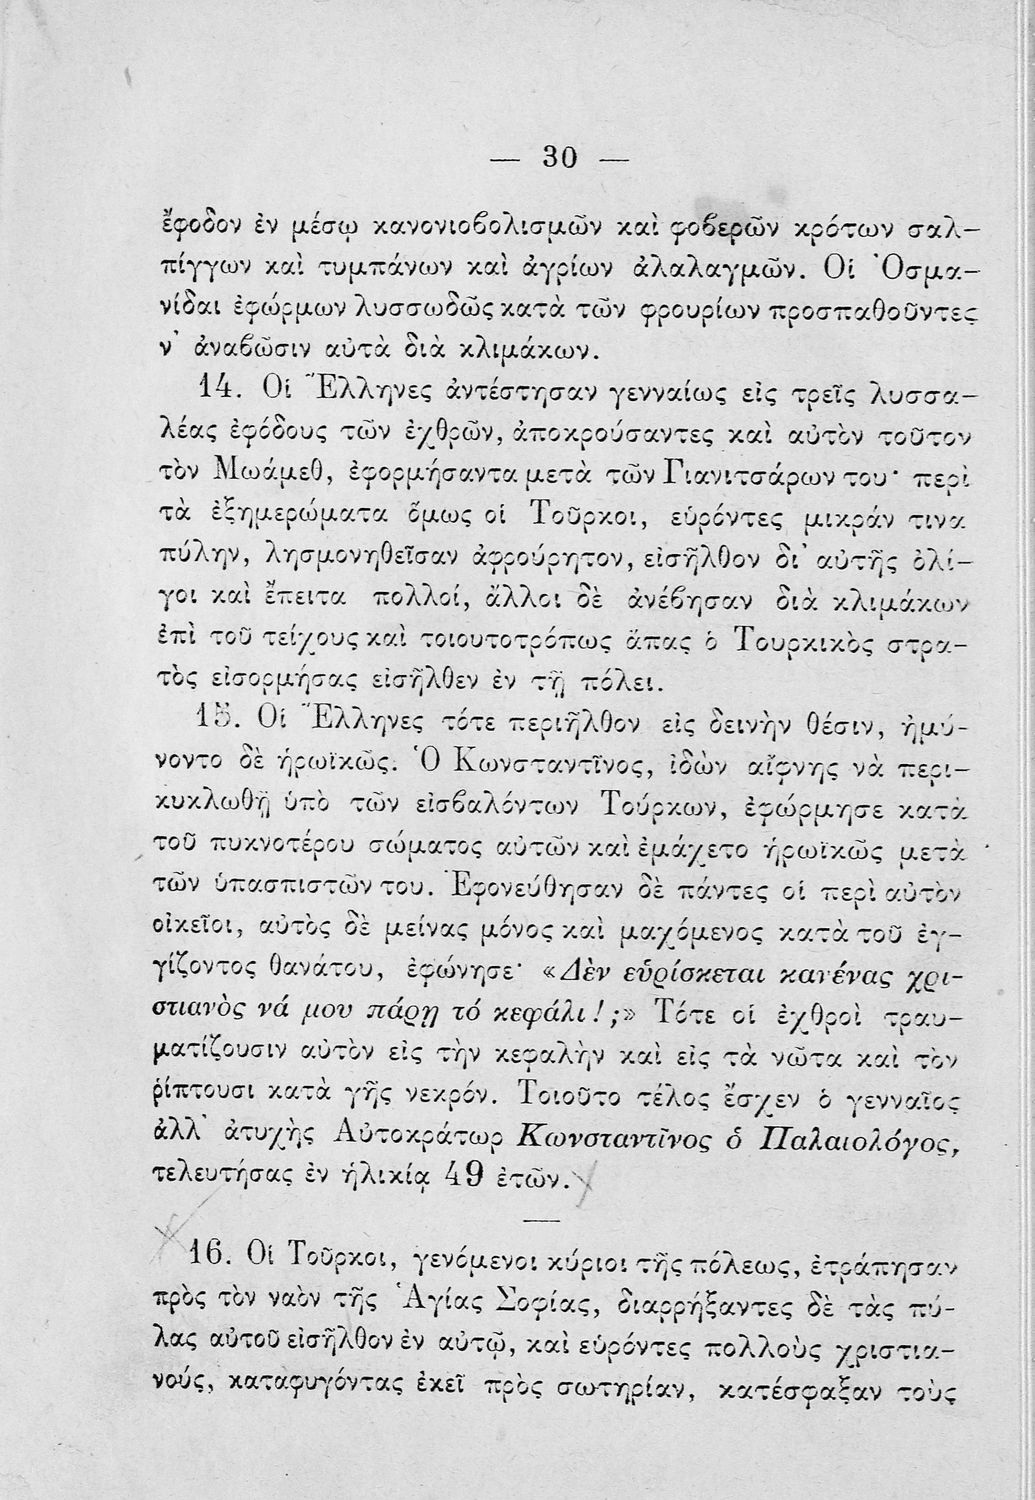 — 30 —
ἔφοδον ἐν μέσῳ κανονιοβολισμῶν καὶ φοβερῶν κρότων σαλ-
πίγγων καὶ τυμπάνων καὶ ἀγρίων ἀλαλαγμῶν. Οἱ Ὀσμα-
νίδαι ἐφώρμων λυσσωδῶς κατὰ τῶν φρουρίων προσπαθοῦντες
ν' ἀναβῶσιν αὐτὰ διὰ κλιμάκων.
14. Οἱ Ἕλληνες ἀντέστησαν γενναίως εἰς τρεῖς λυσσα-
λέας ἐφόδους τῶν ἐχθρῶν, ἀποκρούσαντες καὶ αὐτὸν τοῦτον
τὸν Μωάμεθ, ἐφορμήσαντα μετὰ τῶν Γιανιτσάρων του· περὶ
τὰ ἐξημερώματα ὅμως οἱ Τοῦρκοι, εὑρόντες μικράν τινα
πύλην, λησμονηθεῖσαν ἀφρούρητον, εἰσῆλθον δι' αὐτῆς ὀλί-
γοι καὶ ἔπειτα πολλοί, ἄλλοι δὲ ἀνέβησαν διὰ κλιμάκων
ἐπὶ τοῦ τείχους καὶ τοιουτοτρόπως ἅπας ὁ Τουρκικὸς στρα-
τὸς εἰσορμήσας εἰσῆλθεν ἐν τῇ πόλει.
15. Οἱ Ἕλληνες τότε περιῆλθον εἰς δεινὴν θέσιν, ἠμύ-
νοντο δὲ ἡρωϊκῶς. Ὁ Κωνσταντῖνος, ἰδὼν αἴφνης νὰ περι-
κυκλωθῇ ὑπὸ τῶν εἰσβαλόντων Τούρκων, ἐφώρμησε κατὰ
τοῦ πυκνοτέρου σώματος αὐτῶν καὶ ἐμάχετο ἡρωϊκῶς μετὰ
τῶν ὑπασπιστῶν του. Ἐφονεύθησαν δὲ πάντες οἱ περὶ αὐτὸν
οἰκεῖοι, αὐτὸς δὲ μείνας μόνος καὶ μαχόμενος κατὰ τοῦ ἐγ-
γίζοντος θανάτου, ἐφώνησε· «Δὲν εὑρίσκεται κανένας χρι-
στιανὸς νά μου πάρῃ τό κεφάλι!;» Τότε οἱ ἐχθροὶ τραυ-
ματίζουσιν αὐτὸν εἰς τὴν κεφαλὴν καὶ εἰς τὰ νῶτα καὶ τὸν
ῥίπτουσι κατὰ γῆς νεκρόν. Τοιοῦτο τέλος ἔσχεν ὁ γενναῖος
ἀλλ' ἀτυχὴς Αὐτοκράτωρ Κωνσταντῖνος ὁ Παλαιολόγος,
τελευτήσας ἐν ἡλικίᾳ 49 ἐτῶν.
16. Οἱ Τοῦρκοι, γενόμενοι κύριοι τῆς πόλεως, ἐτράπησαν
πρὸς τὸν ναὸν τῆς Ἁγίας Σοφίας, διαρρήξαντες δὲ τὰς πύ-
λας αὐτοῦ εἰσῆλθον ἐν αὐτῷ, καὶ εὑρόντες πολλοὺς χριστια-
νούς, καταφυγόντας ἐκεῖ πρὸς σωτηρίαν, κατέσφαξαν τοὺς